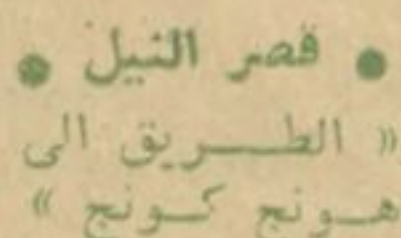 • قصر النيل •
« الطريق الى
هونج كونج »